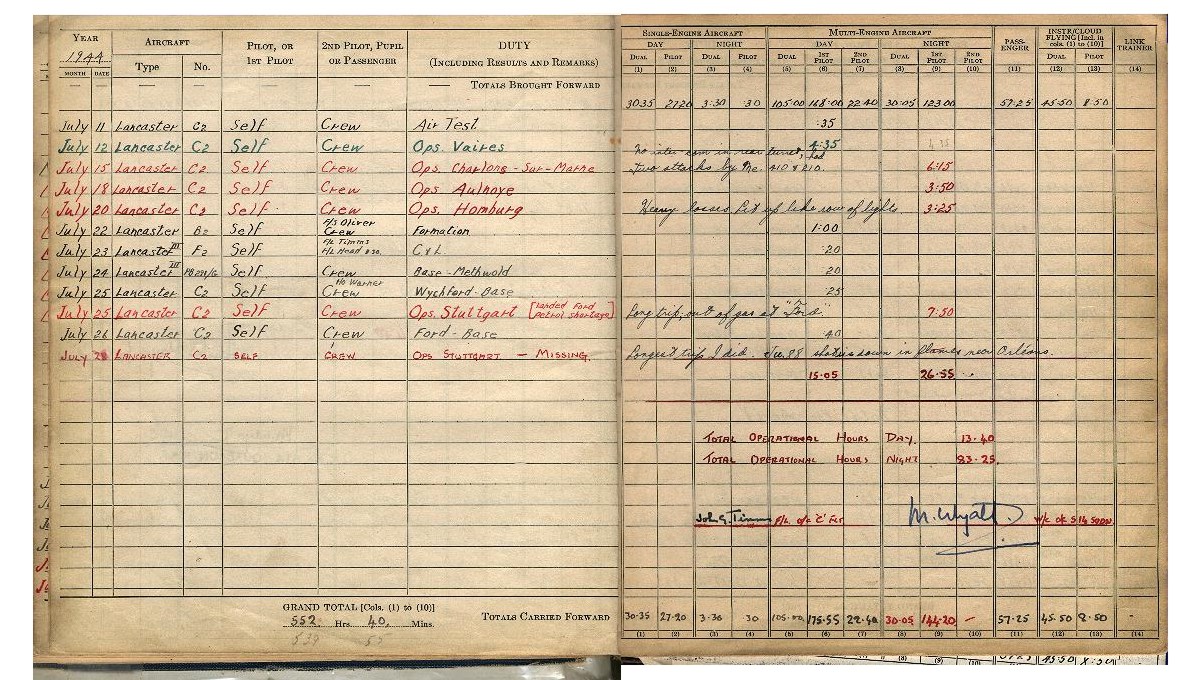 YEAR AIRCRAFT PILOT, OR 1ST PILOT 2ND PILOT, PUPIL OR PASSENGER DUTY (INCLUDING RESULTS AND REMARKS) SINGLE-ENGINE AIRCRAFT MULTI-ENGINE AIRCRAFT PASS-ENGER INSTR/CLOUD FLYING [Incl. in cols. (1) to (10)] LINK TRAINER
1944 Type No. DAY NIGHT DAY NIGHT
MONTH DATE DUAL PILOT DUAL PILOT DUAL 1ST PILOT 2ND PILOT DUAL 1ST PILOT 2ND PILOT DUAL PILOT
(1) (2) (3) (4) (5) (6) (7) (8) (9) (10) (11) (12) (13) (14)
— — — — — — — TOTALS BROUGHT FORWARD 30.35 27.20 3.30 .30 105.00 168.00 22.40 30.05 123.00 57.25 45.50 8.50
July 11 Lancaster C2 Self Crew Air Test .35
July 12 Lancaster C2 Self Crew Ops. Vaires 4:35
No inter com in rear turret, had
July 15 Lancaster C2 Self Crew Ops. Charlong-Sur-Marne two attacks by Me. 410 & 210. 6:15
July 18 Lancaster C2 Self Crew Ops Aulnoye 3:50
July 20 Lancaster C2 Self Crew Ops. Homburg Heavy losses, lit up like row of lights 3:25
July 22 Lancaster B2 Self F/S Oliver Crew Formation 1:00
July 23 Lancaster III F2 Self F/L Timms F/L Head C & L. .20
July 24 Lancaster III Self Crew Base - Methwold 20
July 25 Lancaster C2 Self Crew Wychford-Base 25
July 25 Lancaster C2 Self Crew Ops. Stuttgart [landed Ford petrol shortage] Long trip; out of gas at "Ford". 7:50
July 26 Lancaster C2 Self Crew Ford - Base 40
JULY 28 LANCASTER C2 SELF CREW OPS STUTTGART — MISSING. Longest trip I did. Ju. 88 shot us down in flames near Orléans.
15.05 26.55
TOTAL OPERATIONAL HOURS DAY. 13.40
TOTAL OPERATIONAL HOURS NIGHT 83.25.
John G. Timms F/L o/c 'C' FLT M. Wyatt W/C
GRAND TOTAL [Cols. (1) to (10)]
552 Hrs. 40 Mins. TOTALS CARRIED FORWARD 30.35 27.20 3.30 .30 105.00 175.55 22.40 30.05 144.20 — 57.25 45.50 8.50 -
539 55
(1) (2) (3) (4) (5) (6) (7) (8) (9) (10) (11) (12) (13) (14)